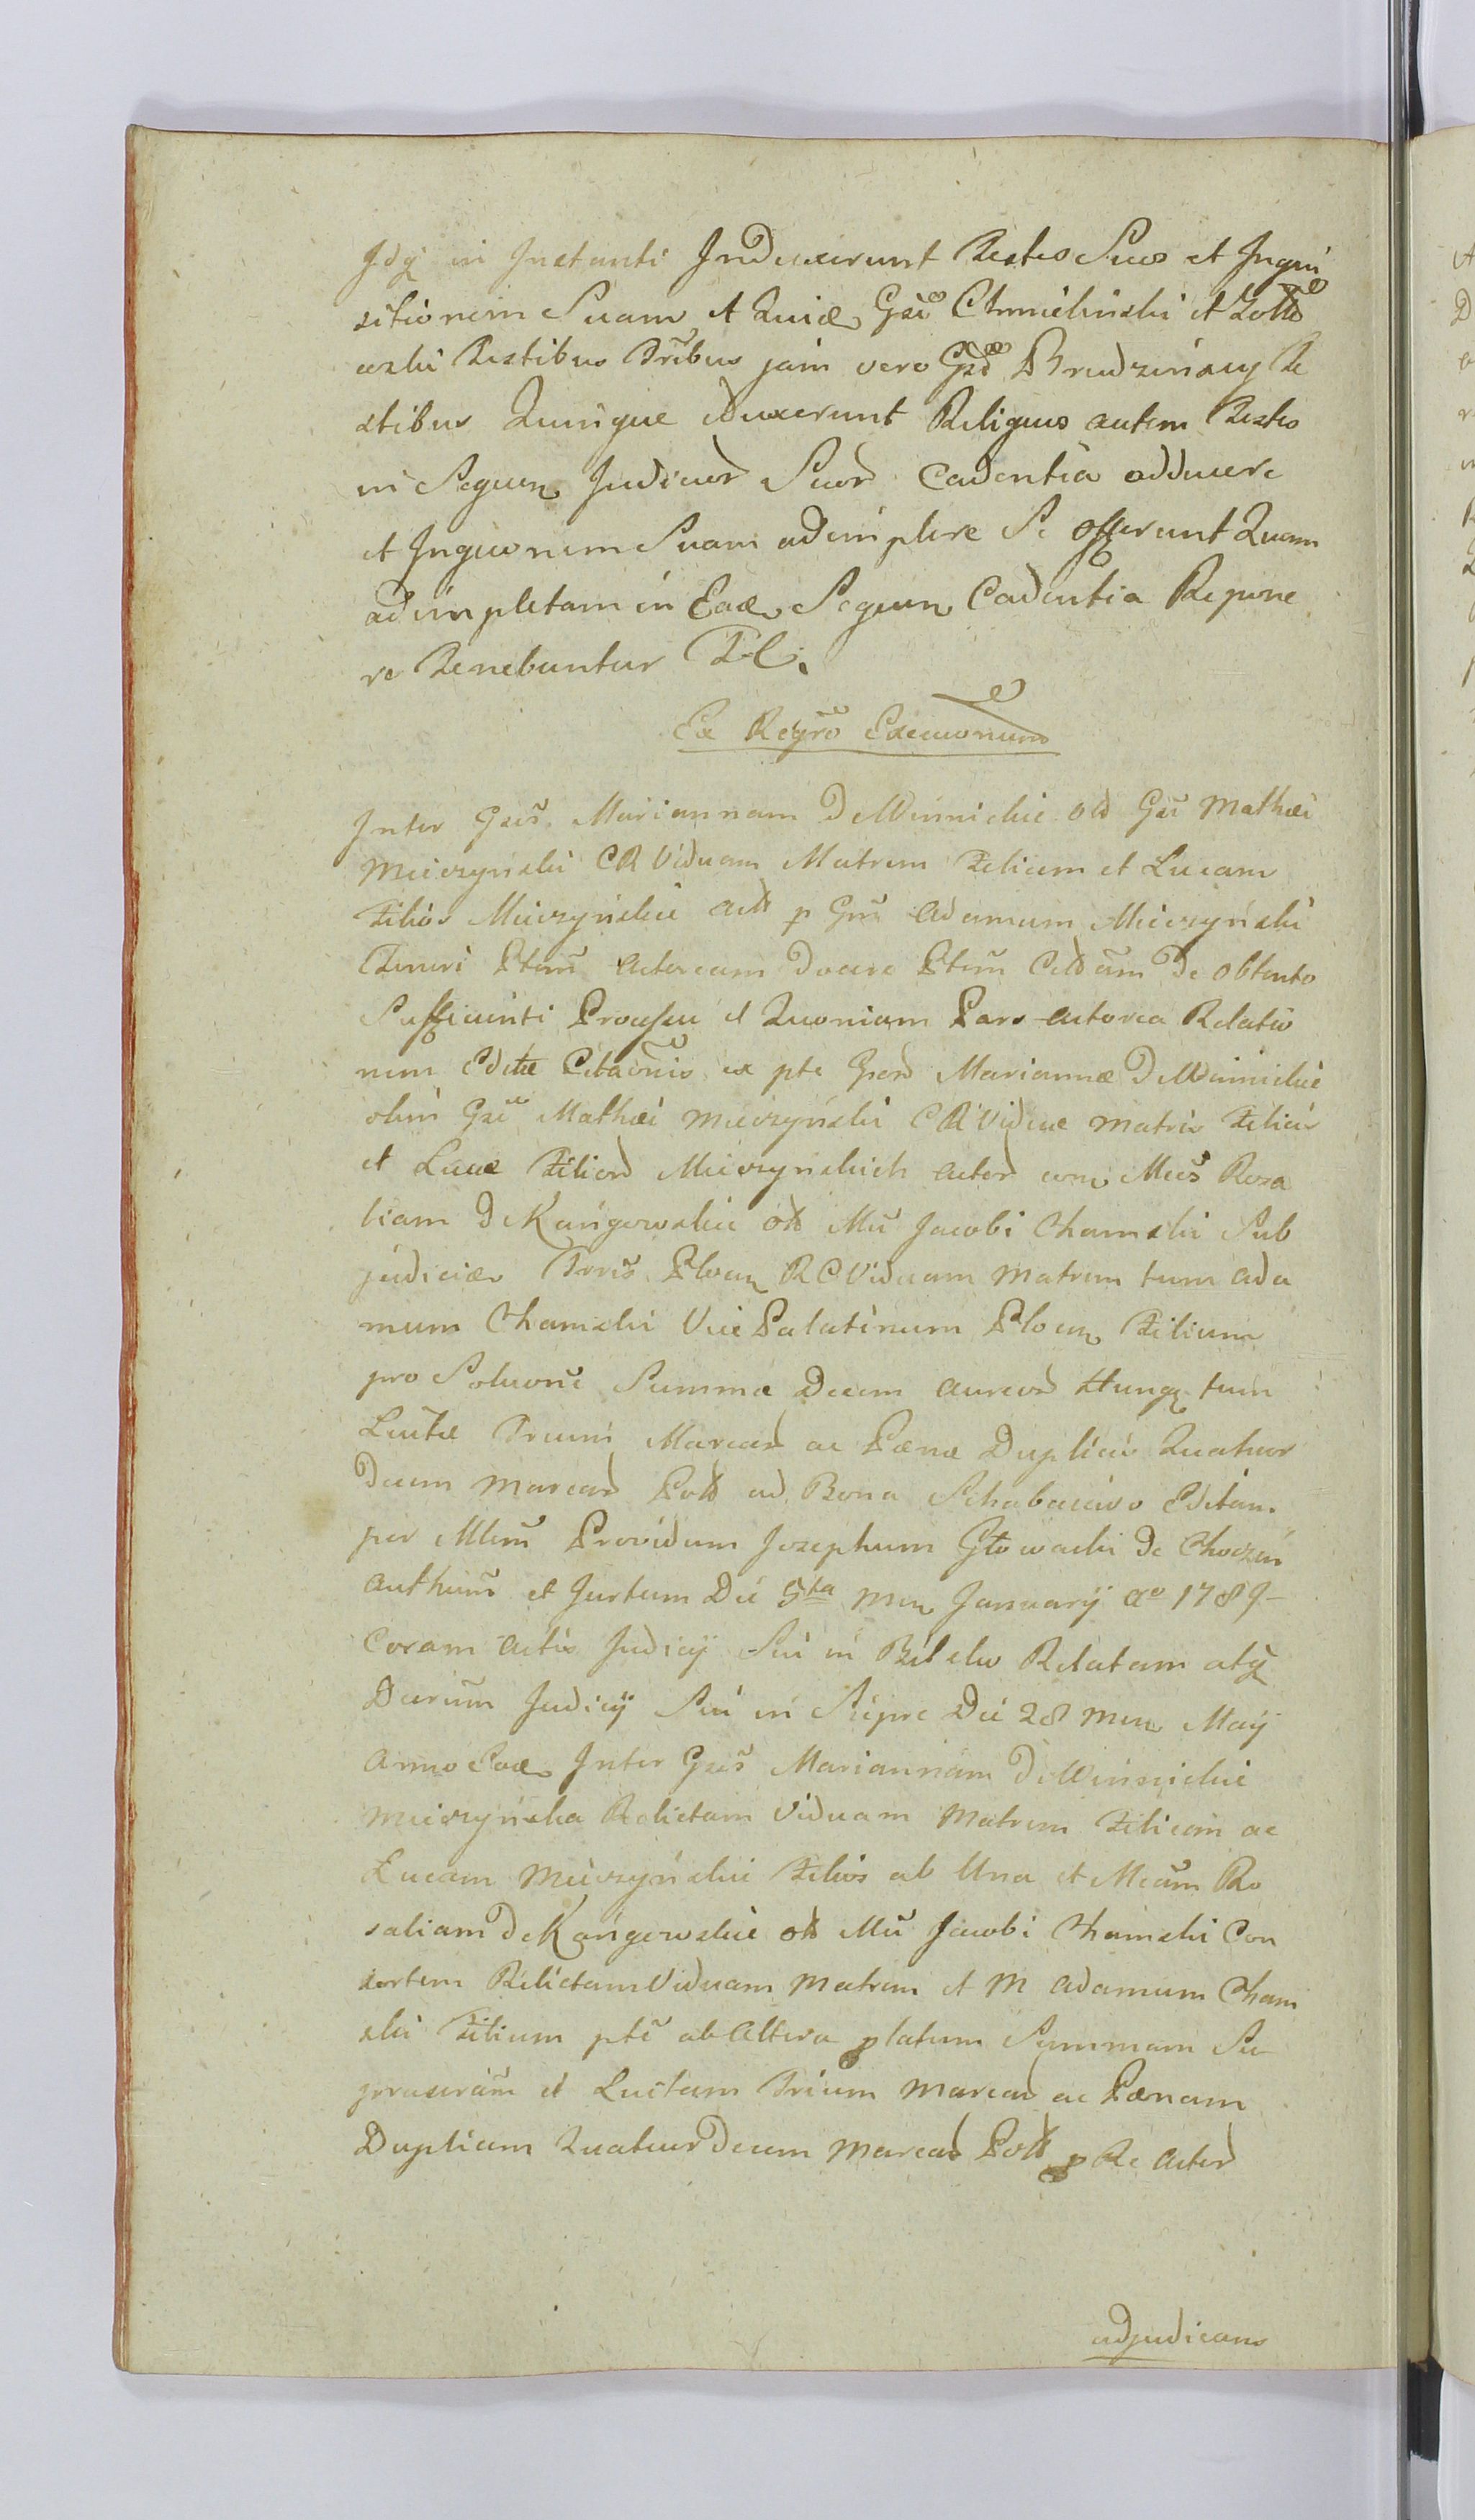 Idq in Instanti Induxerunt Testes Suos et Inqui
sitionem Suam, et Quia Gsi Chmielinski et Zołto
wski Testibus Tribus jam vero Gsd Brudzinscy Te
stibus Quinque eduxerunt Reliquos autem Testes
in Sequen Judicior Suor Cadentia adducere
et Inquonem Suam adimplere Se offerunt Quam
adimpletam in Eadem Sequen Cadentia Repone
re Tenebuntur
Ex Regro Execuonum
Inter Gsas Mariannam De Winnickie old Gsi Mathæi
Mieczyński CR Viduam Matrem Felicem et Lucam
Filios Mieczyńskie actt p Gnm Adamum Mieczyński
Teneri Ptem Actoream Docere Ptem Cittam De obtento
Sufficienti Processu et Quoniam Pars Actorea Relatio
nem Editæ Citaonis ex pte Gsar Mariannæ De Winnickie
olim Gsi Mathæi Mieczyński CR Viduæ Matris Felicis
et Lucæ Filior Mieczyńskich Actor con Mcas Rosa
liam De Kańgowskie olt Mci Jacobi Chamski Sub
judicis Trris Plocen RC Viduam Matrem tum Ada
mum Chamski Vice Palatinum Plocen Filium
pro Soluone Summæ Decem Aureor Hung tum
Luitæ Trium Marcar ac Pænæ Duplicis Quatuor
Decem Marcar Poll ad Bona Schabaiewo Editam
per Mlem Providum Josephum Głowacki De Choczeń
Authum et Jurtum Die 5ta Men January Ao 1789
Coram Actis Judicij Sui in Bielsk Relatam atq
Decrum Judicij Sui in Sierpc Die 28 Men Maij
Anno Eod Inter Gsas Mariannam De Winnickie
Mieczyńska Relictam Viduam Matrem Felicem ac
Lucam Mieczyńskie Filios ab Una et Mcam Ro
saliam De Kańgowskie olt Mci Jacobi Chamski Con
sortem Relictam Viduam Matrem et M Adamum Cham
ski Filium pte ab Altera platum Summam Su
peraseram et Luitam Trium Marcar ac Pænam
Duplicem Quatuor Decem Marcar Poll p Re Actor
adjudicans